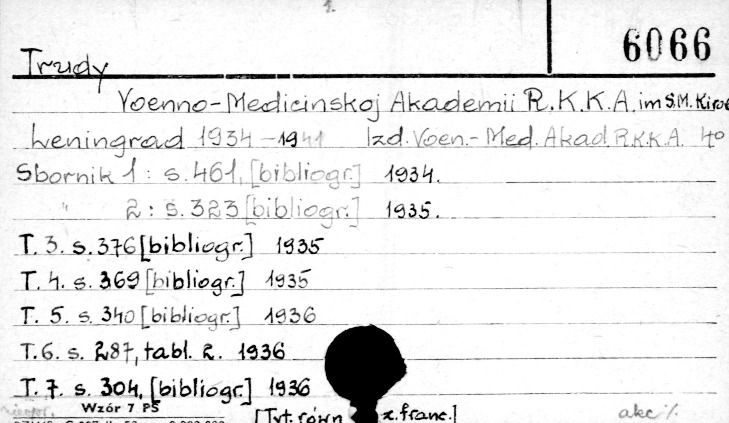 1.
6066
Trudy
Voenno-Medicinskoj Akademii R.K.K.A. im S.M. Kirov
Leningrad 1934-1941 Izd. Voen.-Med. Akad R.K.K.A. 4º
Sbornik 1 : s. 461, [bibliogr.] 1934.
" 2 : s. 323 [bibliogr.] 1935.
T. 3. s. 376 [bibliogr.] 1935
T. 4. s. 369 [bibliogr.] 1935
T. 5. s. 340 [bibliogr.] 1936
T. 6. s. 287, tabl. 2. 1936
T. 7. s. 304, [bibliogr.] 1936
Wzór 7 PŚ
[Tyt. równ z. franc.]
akc